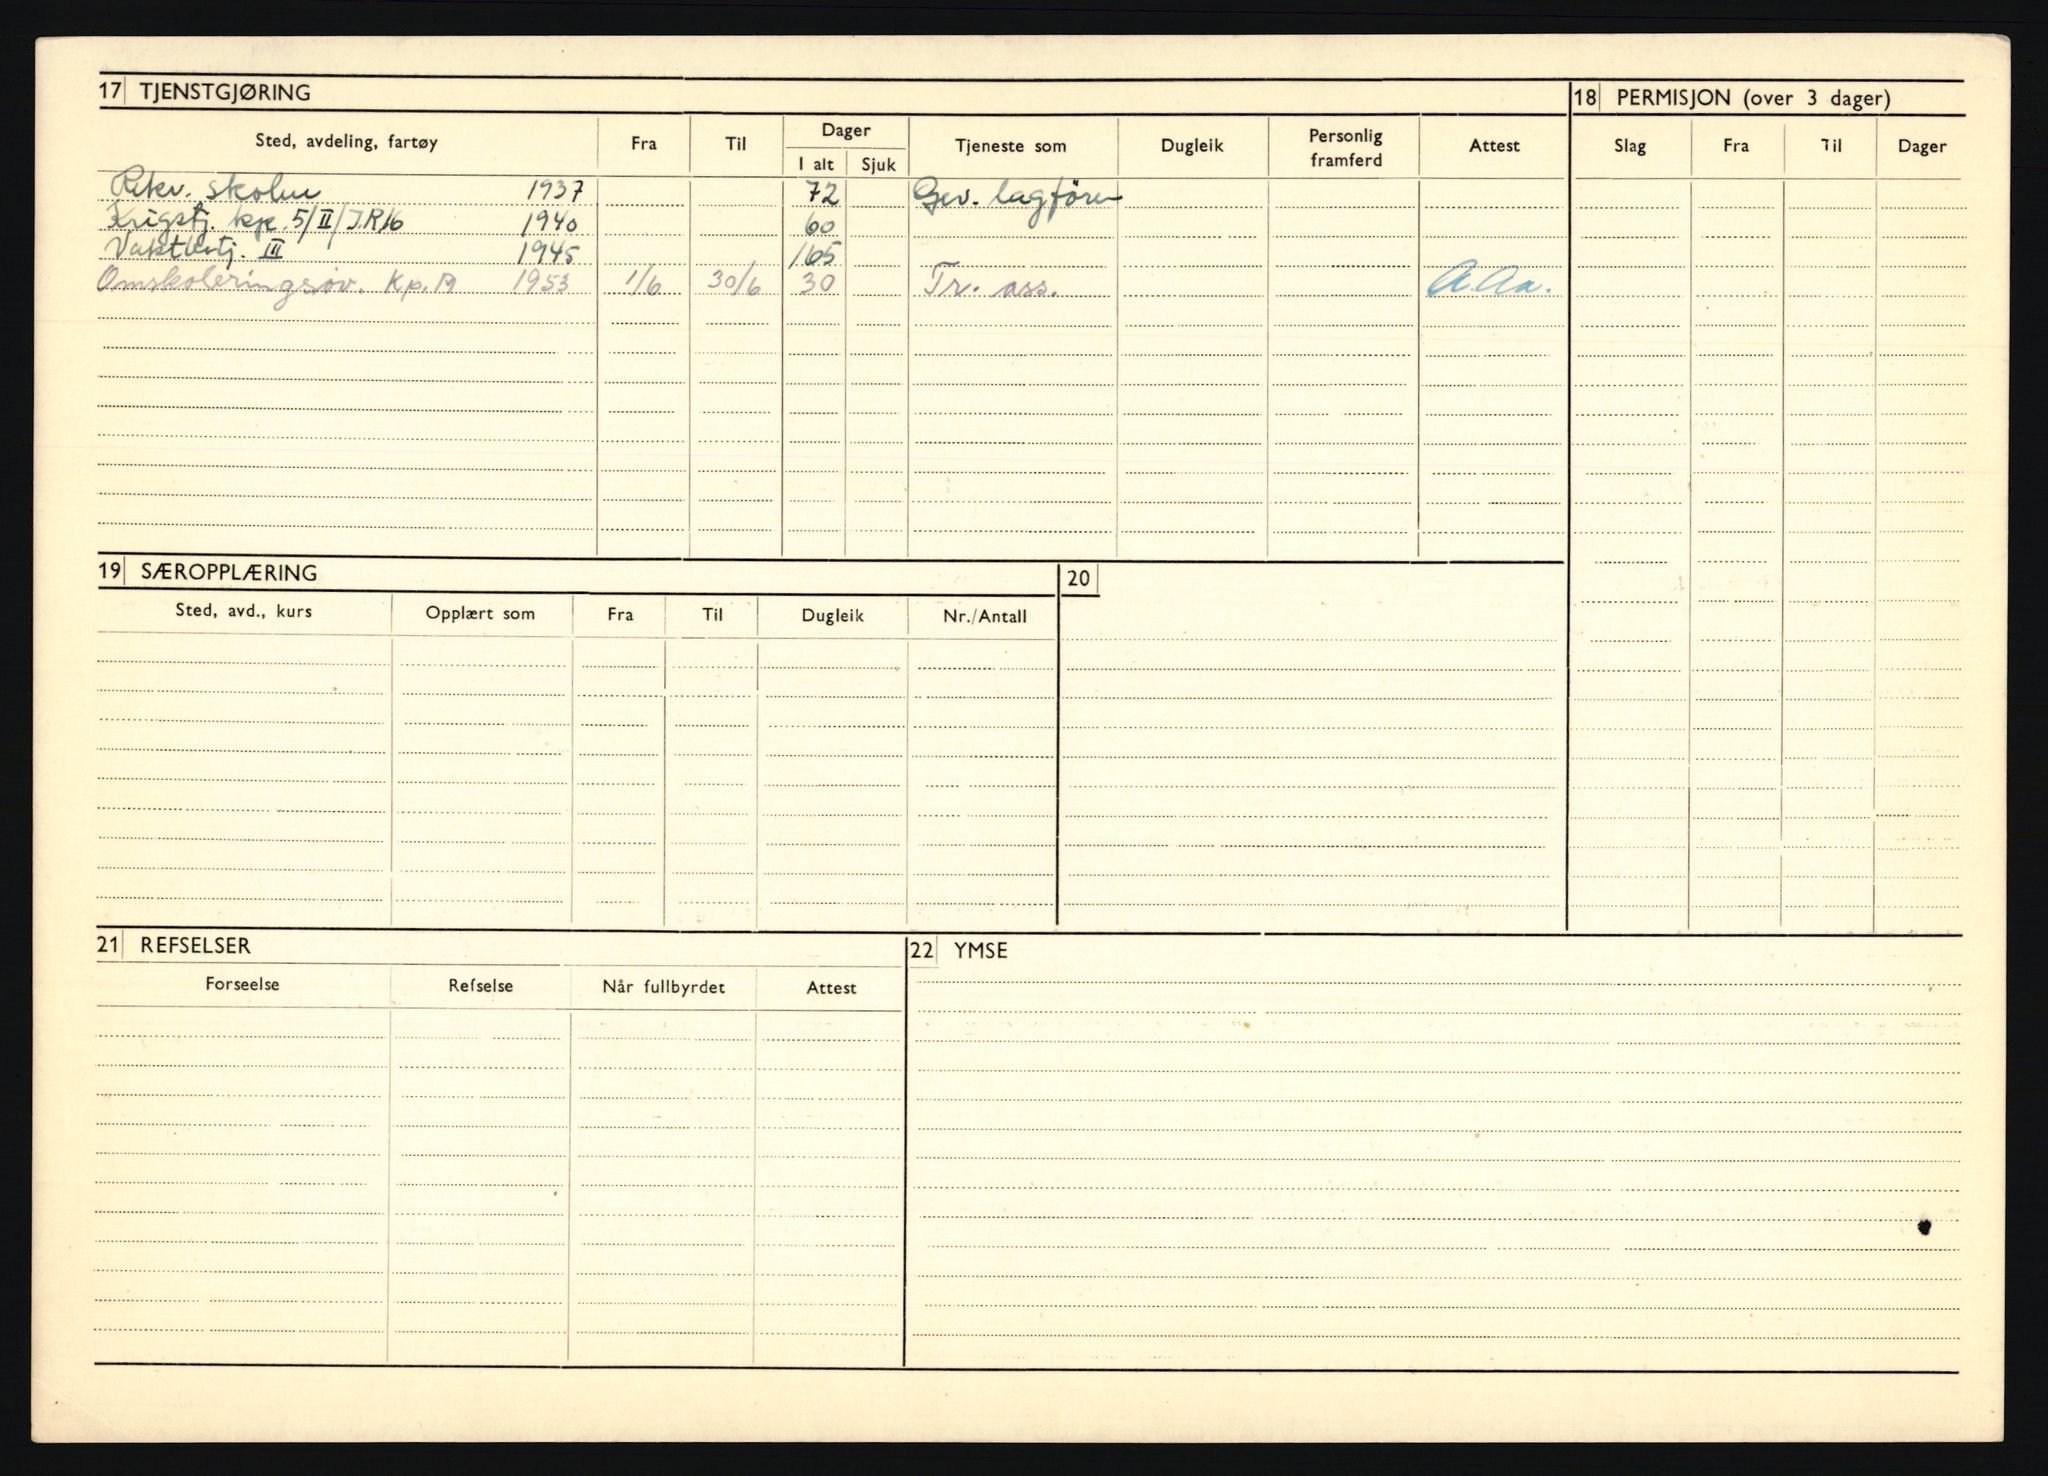 17 TJENSTGJØRING
18 PERMISJON (over 3 dager)
Sted, avdeling, fartøy Fra Til Dager Tjeneste som Dugleik Personlig framferd Attest Slag Fra Til Dager
I alt Sjuk
Rekr. skolen 1937 72 Gev. lagfører
Krigstj. kp. 5/II/J.R/6 1940 60
III 1945 165
Omskoleringsøv. Kp. 1953 1/6 30/6 30 Tr. ass. A.Aa.
19 SÆROPPLÆRING
20
Sted, avd., kurs Opplært som Fra Til Dugleik Nr./Antall
21 REFSELSER
22 YMSE
Forseelse Refselse Når fullbyrdet Attest